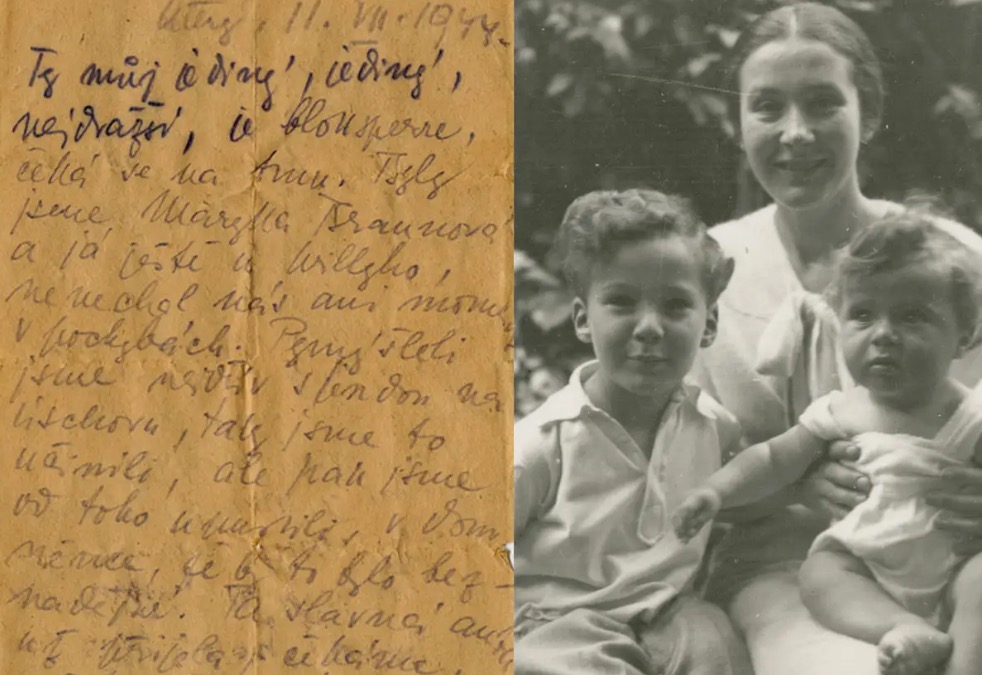 Úterý, 11. VII. 1944.
Ty můj jediný, jediný,
nejdražší, je bloksperre,
čeká se na tmu. Byly
jsme, Maryka Braunová
a já ještě u Willyho,
nenechal nás ani
v pochybách. Pomýšleli
jsme nejdřív s Jendou na
lischovu, taky jsme to
učinili, ale pak jsme
od toho upustili, v dom-
něnce, že by to bylo bez-
nadějné. Ta slavná
už přijela, čekáme,